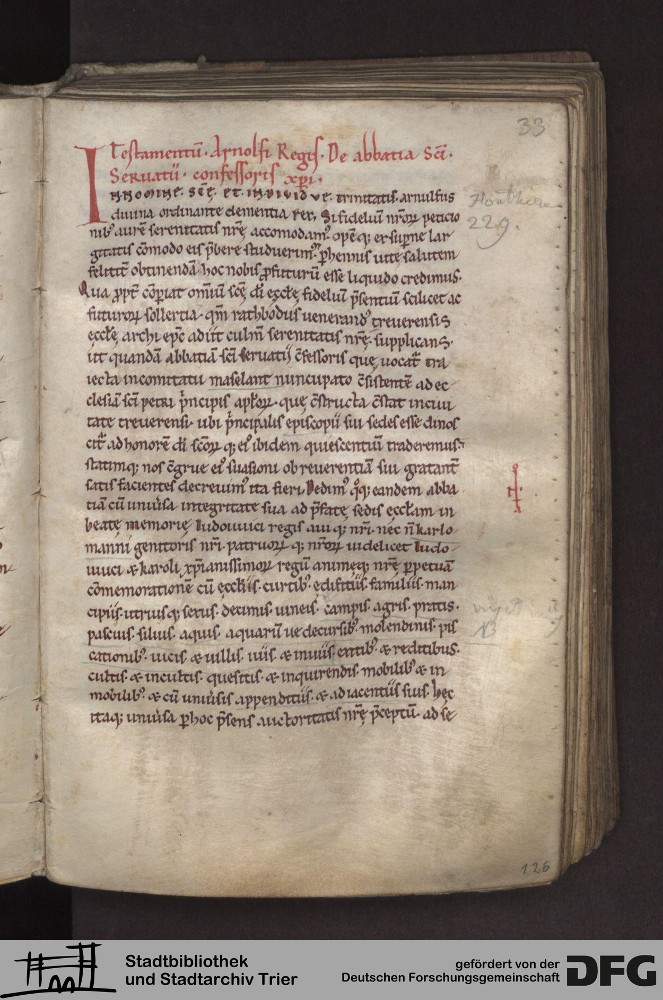 33
Testamentū. Arnolfi Regis. De abbatia Scī.
Seruatii. confessoris xp̄i.
INNOMINE. SCĒ. ET INDIVIDVE. trinitatis. arnulfus
diuina ordinante clementia rex, Si fideliū nr̄oꝝ peticio
nib; aurē serenitatis nr̄ę accomodam᾽. opēq; ex superne lar
gitatis cōmodo eis p̄bere studuerim᾽. ꝑhennis uitę salutem
feliciū obtinendā. hoc nobis ꝓfuturū esse liquido credimus.
Qua ꝓpt̄ cōꝑiat omniū scę dī ecclę fideliū p̄sentiū scilicet ac
futuroꝝ sollertia. qm̄ rathbodus uenerand᾽ treuerensis
ecclę archi epc̄ adiit culm̄ serenitatis nr̄ę. supplicans.
ut quandā abbatiā scī seruatii c̄fessoris quę uocat᾽ tra
iecta in comitatu maselant nuncupato c̄sistentē ad ec
clesiā scī petri p̄ncipis apl̄oꝝ. quę c̄structa c̄stat in ciui
tate treuerensi. ubi p̄ncipalis episcopii sui sedes esse dinos
cit᾽. ad honorē dī scōꝝ q; ei᾽ ibidem quiescentiū traderemus.
statimq; nos c̄grue ei᾽ suasioni ob reuerentiā sui gratant᾽
satis facientes decreuim᾽ ita fieri. Dedim᾽ q̊q; eandem abba
tiā cū uniūsa integritate sua ad p̄fatę sedis eccłam in
beatę memorię ludouuici regis aui q; nr̄i. nec n̄ karlo
manni genitoris nr̄i. patruoꝝ q; nr̄oꝝ uidelicet ludo
uuici & karoli xp̄ianissimoꝝ regū animeq; nr̄ę ꝑpetuā
cōmemorationē cū eccłiis. curtib᾽. edifitiis. familiis. man
cipiis. utriusq; sexus. decimis. uineis. campis. agris. pratis.
pascuis. siluis. aquis. aquarū ue decursib᾽. molendinis. pis
cationib᾽. uicis & uillis. uiis & inuiis. exitib᾽. & reditibus.
cultis & incultis. quesitis & inquirendis. mobilib᾽ & in
mobilib᾽ & cū uniūsis appenditiis. & adiacentiis suis. hęc
itaq; uniūsa ꝑ hoc p̄sens auctoritatis nr̄ę p̄ceptū. ad se
229.
126
Stadtbibliothek
und Stadtarchiv Trier
gefördert von der
Deutschen Forschungsgemeinschaft
DFG